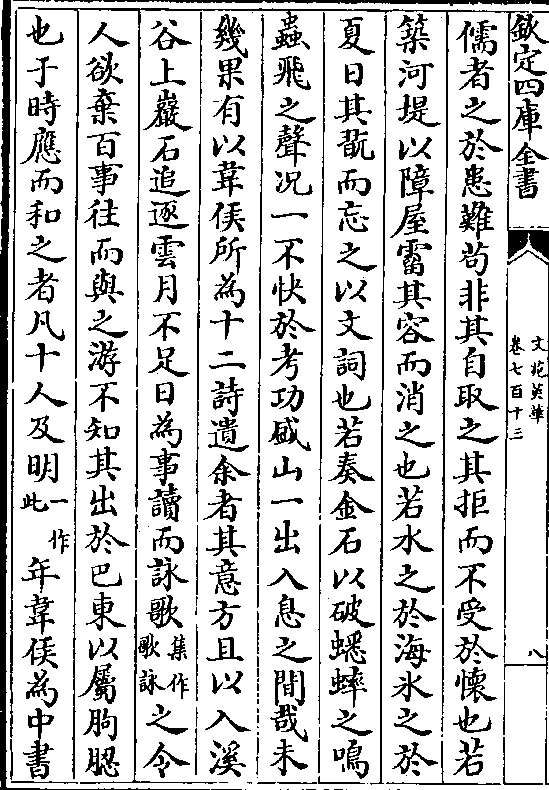 欽定四庫全書
文苑英華
卷七百十三
八
儒者之於患難苟非其自取之其拒而不受於懷也若
築河堤以障屋霤其容而消之也若水之於海氷之於
夏日其翫而忘之以文詞也若奏金石以破蟋蟀之鳴
蟲飛之聲况一不快於考功盛山一出入息之間哉未
幾果有以韋侯所為十二詩遺余者其意方且以入溪
谷上巖石追逐雲月不足日為事讀而詠歌集作歌詠之令
人欲棄百事往而與之游不知其出於巴東以屬朐䏰
也于時應而和之者凡十人及明一作此年韋侯為中書